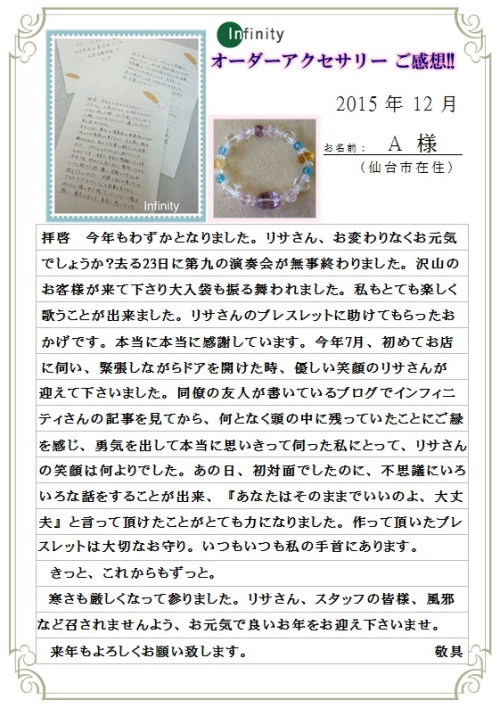 Infinity
オーダーアクセサリー ご感想!!
2015 年 12 月
お名前： A 様
（仙台市在住）
Infinity
拝啓　今年もわずかとなりました。リサさん、お変わりなくお元気
でしょうか?去る23日に第九の演奏会が無事終わりました。沢山の
お客様が来て下さり大入袋も振る舞われました。私もとても楽しく
歌うことが出来ました。リサさんのブレスレットに助けてもらったお
かげです。本当に本当に感謝しています。今年7月、初めてお店
に伺い、緊張しながらドアを開けた時、優しい笑顔のリサさんが
迎えて下さいました。同僚の友人が書いているブログでインフィニ
ティさんの記事を見てから、何となく頭の中に残っていたことにご縁
を感じ、勇気を出して本当に思いきって伺った私にとって、リサさん
の笑顔は何よりでした。あの日、初対面でしたのに、不思議にいろ
いろな話をすることが出来、『あなたはそのままでいいのよ、大丈
夫』と言って頂けたことがとても力になりました。作って頂いたブレ
スレットは大切なお守り。いつもいつも私の手首にあります。
きっと、これからもずっと。
寒さも厳しくなって参りました。リサさん、スタッフの皆様、風邪
など召されませんよう、お元気で良いお年をお迎え下さいませ。
来年もよろしくお願い致します。　敬具